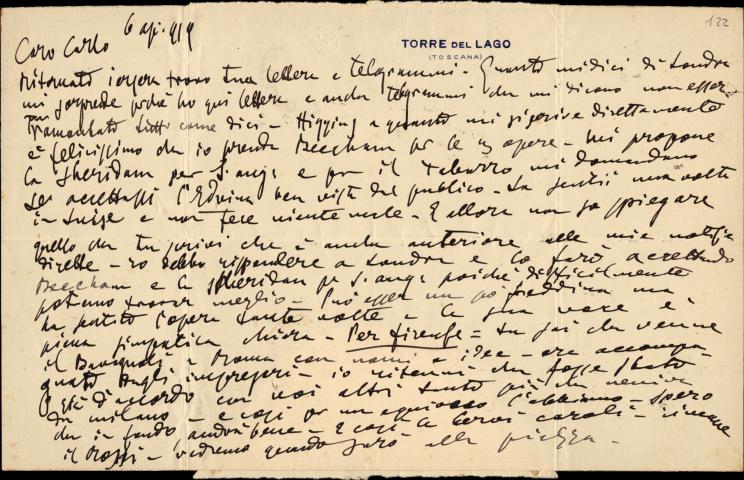 122
6 ap. 919
TORRE DEL LAGO
(TOSCANA)
Caro Carlo
Ritornato iersera trovo tua lettera e telegrammi - Quanto mi dici di Londra
mi sorprende perchè ho qui lettera e anche telegrammi che mi dicono non esser
tramontato tutto come dici - Higgins a quanto mi si scrive direttamente
è felicissimo che io prenda Beecham per le 3 opere - mi propone
la Sheridan per S. Ang. e per il Tabarro mi domandano
se accettassi l'Edvina ben vista dal publico - La sentii una volta
in Suisse e non fece niente male - E allora non so spiegare
quello che tu scrivi che è anche anteriore alle mie notizie
dirette - io debbo rispondere a Londra e lo farò accettando
Beecham e la Sheridan per S. Ang. poichè difficilmente
potremo trovar meglio - Può esser un po' freddina ma
ha cantato l'opera tante volte - la sua voce è
piena simpatica chiara - Per Firenze = tu sai che venne
il Bavagnoli a Roma con nomi e idee - era accompa-
gnato dagli impresari - io ritenni che fosse stato
già d'accordo con voi altri tanto più che veniva
da Milano - e così per un equivoco l'abbiamo - Spero
che in fondo andrà bene - E così la - rimane
il - vedremo quando sarò alla piazza -